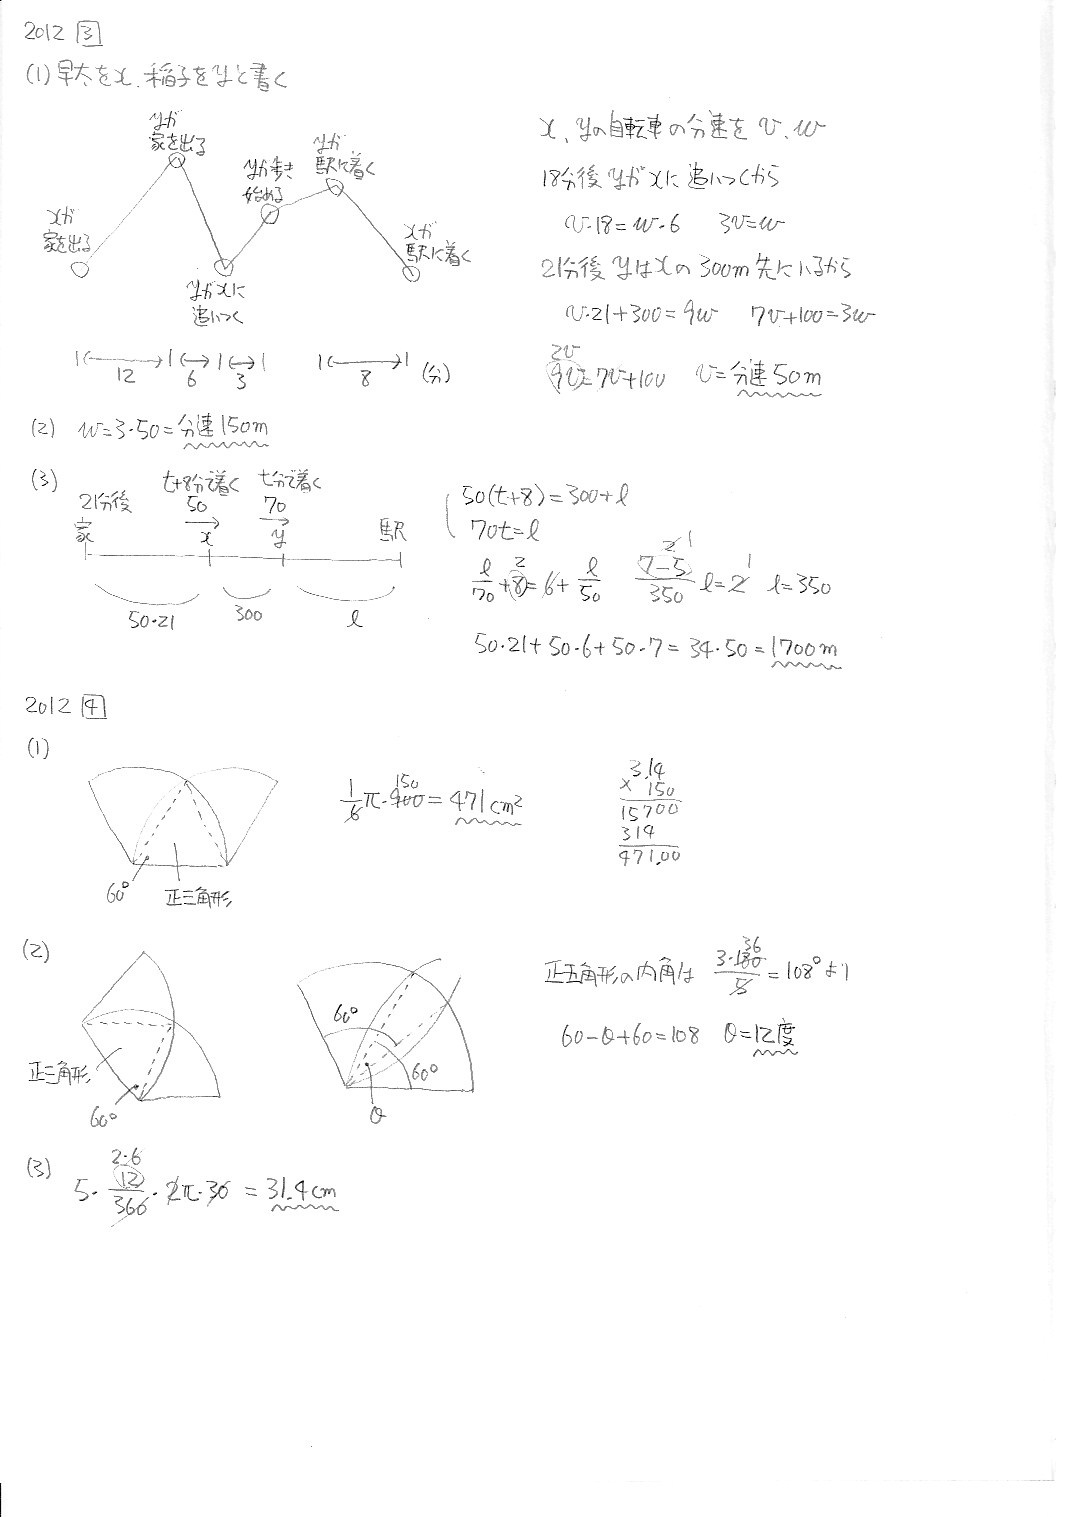 2012 3
(1) 早太をx、稲子をyと書く
yが
家を出る
yが歩き
始める
yが
駅に着く
xが
家を出る
xが
駅に着く
yがxに
追いつく
12
6
3
8
(分)
x、yの自転車の分速を v、w
18分後 yがxに追いつくから
v・18=w・6 3v=w
21分後 yはxの300m先にいるから
v・21+300=9w 7v+100=3w
2v
9v=7v+100 v=分速50m
(2) w=3・50=分速150m
(3)
21分後
家
t+8分で着く
50
x
t分で着く
70
y
駅
50・21
300
l
50(t+8)=300+l
70t=l
l/70+8=6+l/50 (7-5)/350 l=2 l=350
2
2 1
1
50・21+50・6+50・7=34・50=1700m
2012 4
(1)
60°
正三角形
150
1/6π・900=471cm²
3.14
× 150
15700
314
471.00
(2)
正三角形
60°
60°
60°
θ
36
正五角形の内角は 3・180/5=108°より
60-θ+60=108 θ=12度
(3)
2・6
5・12/360・2π・30=31.4cm